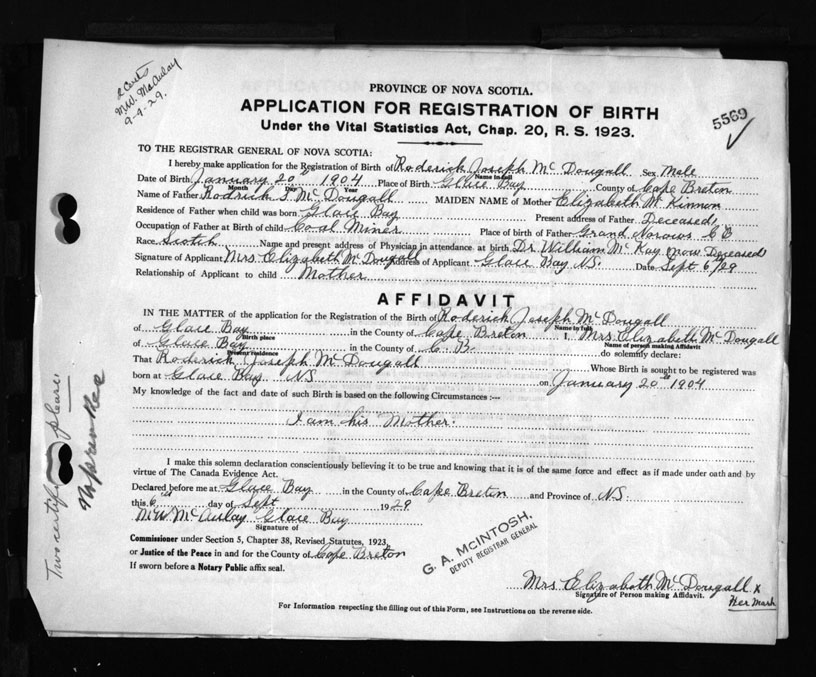 2 Certs
M.W. McAulay
9-9-29.
PROVINCE OF NOVA SCOTIA.
APPLICATION FOR REGISTRATION OF BIRTH
5569
Under the Vital Statistics Act, Chap. 20, R. S. 1923.
TO THE REGISTRAR GENERAL OF NOVA SCOTIA:
I hereby make application for the Registration of Birth of Roderick Joseph McDougall Sex Male
Name in full
Date of Birth January 20th 1904 Place of Birth Glace Bay County of Cape Breton
Month Day Year
Name of Father Rodrick S. McDougall MAIDEN NAME of Mother Elizabeth McKinnon
Residence of Father when child was born Glace Bay Present address of Father Deceased
Occupation of Father at Birth of child Coal Miner Place of birth of Father Grand Norows C B
Race Scotch Name and present address of Physician in attendance at birth Dr. William McKay (now Deceased)
Signature of Applicant Mrs. Elizabeth McDougall Address of Applicant Glace Bay NS. Date Sept 6th/29
Relationship of Applicant to child Mother
AFFIDAVIT
IN THE MATTER of the application for the Registration of the Birth of Roderick Joseph McDougall
Name in full
of Glace Bay in the County of Cape Breton I, Mrs Elizabeth McDougall
Birth place Name of person making Affidavit
of Glace Bay in the County of C. B. do solemnly declare:
Present residence
That Roderick Joseph McDougall Whose Birth is sought to be registered was
born at Glace Bay NS on January 20th 1904
My knowledge of the fact and date of such Birth is based on the following Circumstances :—
I am his Mother.
I make this solemn declaration conscientiously believing it to be true and knowing that it is of the same force and effect as if made under oath and by
virtue of The Canada Evidence Act.
Declared before me at Glace Bay in the County of Cape Breton and Province of NS.
this 6th day of Sept 1929
M.W. McAulay Glace Bay
Signature of
Commissioner under Section 5, Chapter 38, Revised Statutes, 1923,
or Justice of the Peace in and for the County of Cape Breton
If sworn before a Notary Public affix seal.
G. A. McINTOSH.
DEPUTY REGISTRAR GENERAL
Mrs Elizabeth McDougall x
Signature of Person making Affidavit.
Her Mark
For Information respecting the filling out of this Form, see Instructions on the reverse side.
Two please.